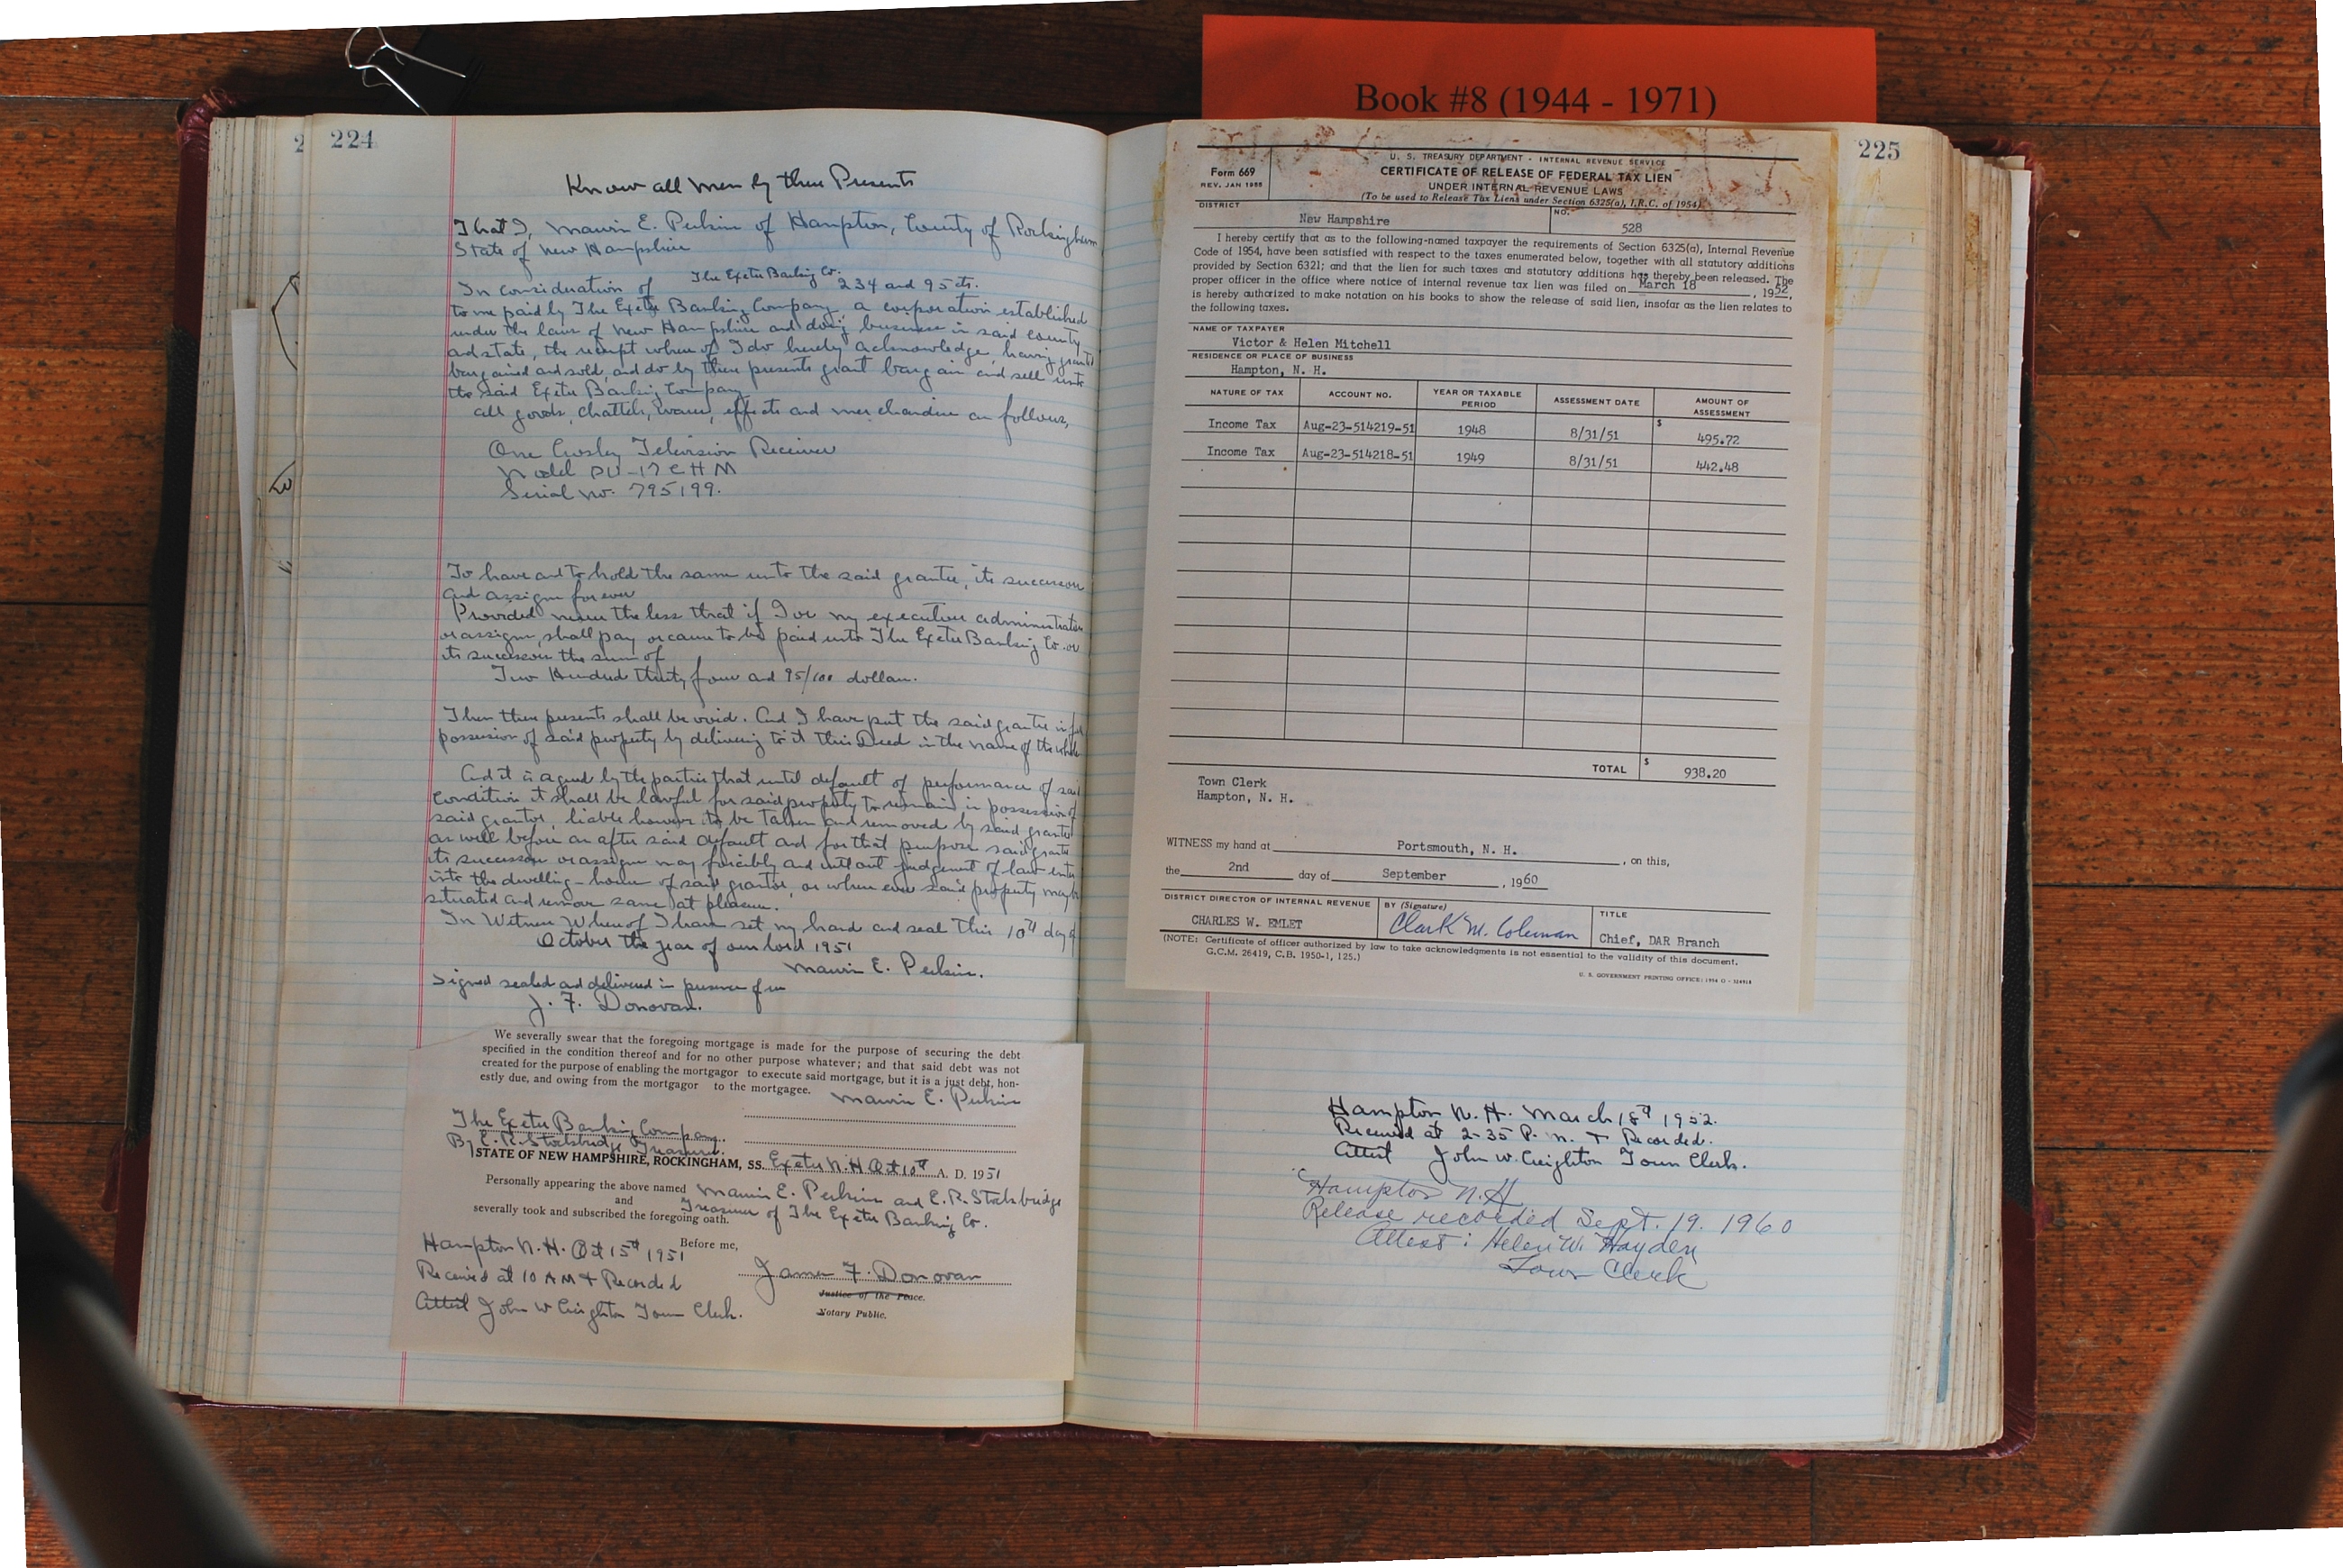 Book #8 (1944 - 1971)
224
Know all men by these Presents
That I, Maurin E. Perkins of Hampton, County of Rockingham
State of New Hampshire
The Exeter Banking Co.
In consideration of 234 and 95 cts.
to me paid by The Exeter Banking Company, a corporation established
under the laws of New Hampshire and doing business in said county
and state, the receipt whereof I do hereby acknowledge, having granted
bargained and sold, and do by these presents grant bargain and sell unto
the said Exeter Banking Company
all goods, chattels, wares, effects and merchandise as follows,
One Crosley Television Receiver
Model DU-17CHM
Serial No. 795199.
To have and to hold the same unto the said grantee, its successors
and assigns forever
Provided never the less that if I or my executors administrators
or assigns, shall pay, or cause to be paid unto The Exeter Banking Co. or
its successors the sum of
Two Hundred thirty four and 95/100 dollars.
Then these presents shall be void. And I have put the said grantee in full
possession of said property by delivering to it this Deed in the name of the whole
And it is agreed by the parties that until default of performance of said
condition it shall be lawful for said property to remain in possession of
said grantor, liable however to be taken and removed by said grantee
as well before as after said default and for that purpose said grantee
its successors or assigns may forcibly and without judgement of law enter
into the dwelling-house of said grantor, or where ever said property may be
situated and remove same at pleasure.
In Witness Whereof I have set my hand and seal this 10th day of
October the year of our lord 1951
Maurin E. Perkins.
Signed sealed and delivered in presence of us
J. F. Donovan.
We severally swear that the foregoing mortgage is made for the purpose of securing the debt
specified in the condition thereof and for no other purpose whatever; and that said debt was not
created for the purpose of enabling the mortgagor to execute said mortgage, but it is a just debt, hon-
estly due, and owing from the mortgagor to the mortgagee.
Maurin E. Perkins
The Exeter Banking Company.
By E. R. Stockbridge Treasurer.
STATE OF NEW HAMPSHIRE, ROCKINGHAM, SS. Exeter N.H. Oct 10th A. D. 1951
Personally appearing the above named Maurin E. Perkins and E. R. Stockbridge
and Treasurer of The Exeter Banking Co.
severally took and subscribed the foregoing oath.
Before me,
Hampton N. H. Oct 15th 1951
Received at 10 AM & Recorded
James F. Donovan
Attest John W Creighton Town Clerk.
Justice of the Peace.
Notary Public.
225
Form 669
REV. JAN 1955
U. S. TREASURY DEPARTMENT - INTERNAL REVENUE SERVICE
CERTIFICATE OF RELEASE OF FEDERAL TAX LIEN
UNDER INTERNAL REVENUE LAWS
(To be used to Release Tax Liens under Section 6325(a), I.R.C. of 1954)
DISTRICT
New Hampshire
NO.
528
I hereby certify that as to the following-named taxpayer the requirements of Section 6325(a), Internal Revenue
Code of 1954, have been satisfied with respect to the taxes enumerated below, together with all statutory additions
provided by Section 6321; and that the lien for such taxes and statutory additions has thereby been released. The
proper officer in the office where notice of internal revenue tax lien was filed on March 18, 1952,
is hereby authorized to make notation on his books to show the release of said lien, insofar as the lien relates to
the following taxes.
NAME OF TAXPAYER
Victor & Helen Mitchell
RESIDENCE OR PLACE OF BUSINESS
Hampton, N. H.
NATURE OF TAX ACCOUNT NO. YEAR OR TAXABLE PERIOD ASSESSMENT DATE AMOUNT OF ASSESSMENT
Income Tax Aug-23-514219-51 1948 8/31/51 $ 495.72
Income Tax Aug-23-514218-51 1949 8/31/51 442.48
TOTAL $ 938.20
Town Clerk
Hampton, N. H.
WITNESS my hand at Portsmouth, N. H., on this,
the 2nd day of September, 1960
DISTRICT DIRECTOR OF INTERNAL REVENUE
CHARLES W. EMLET
BY (Signature)
Clark M. Coleman
TITLE
Chief, DAR Branch
(NOTE: Certificate of officer authorized by law to take acknowledgments is not essential to the validity of this document.
G.C.M. 26419, C.B. 1950-1, 125.)
U. S. GOVERNMENT PRINTING OFFICE: 1954 O - 324918
Hampton N. H. March 18th 1952.
Received at 2-35 P. M. & Recorded.
Attest John W. Creighton Town Clerk.
Hampton N.H
Release recorded Sept. 19. 1960
Attest: Helen W. Hayden
Town Clerk